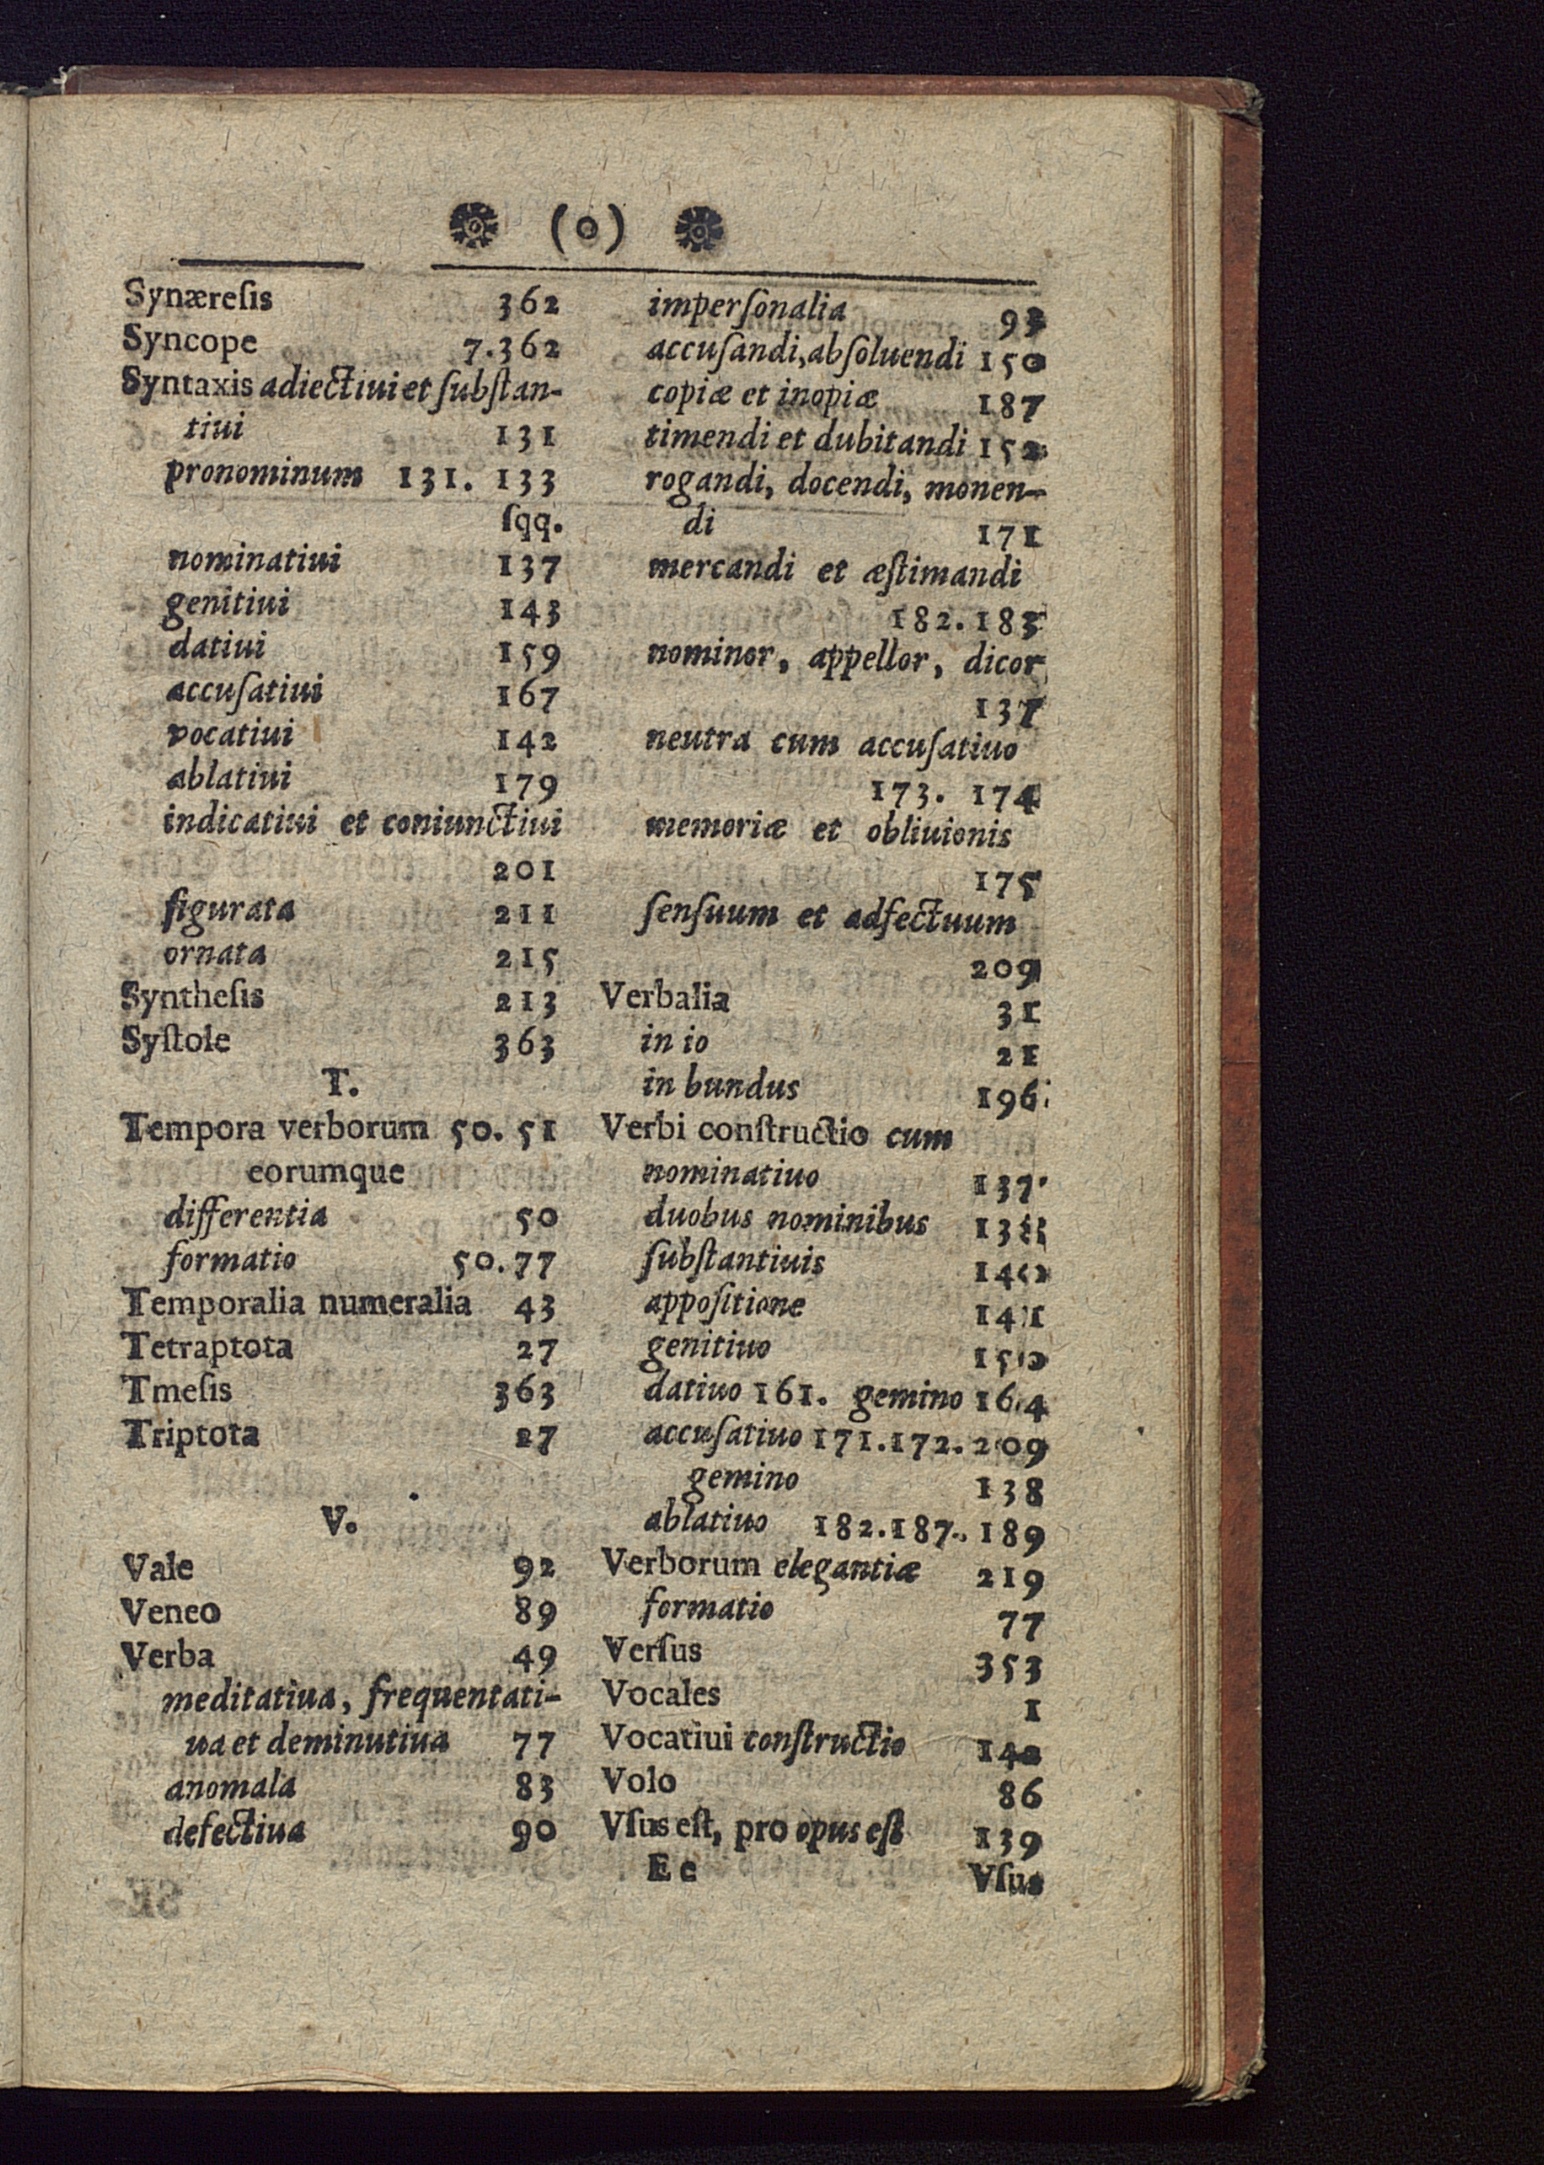 (o)
Synæreſis 362
Syncope 7.362
Syntaxis adiectiui et ſubſtan-
tiui 131
pronominum 131. 133
ſqq.
nominatiui 137
genitiui 143
datiui 159
accuſatiui 167
vocatiui 142
ablatiui 179
indicatiui et coniunctiui
201
figurata 211
ornata 215
Syntheſis 213
Syſtole 363
T.
Tempora verborum 50. 51
eorumque
differentia 50
formatio 50.77
Temporalia numeralia 43
Tetraptota 27
Tmeſis 363
Triptota 27
V.
Vale 92
Veneo 89
Verba 49
meditatiua, frequentati-
ua et deminutiua 77
anomala 83
defectiua 90
imperſonalia 93
accuſandi, abſoluendi 150
copiæ et inopiæ 187
timendi et dubitandi 152
rogandi, docendi, monen-
di 171
mercandi et æſtimandi
182. 183
nominor, appellor, dicor
137
neutra cum accuſatiuo
173. 174
memoriæ et obliuionis
175
ſenſuum et adfectuum
209
Verbalia 31
in io 21
in bundus 196
Verbi conſtructio cum
nominatiuo 137
duobus nominibus
ſubſtantiuis 140
appoſitione 141
genitiuo 150
datiuo 161. gemino 164
accuſatiuo 171.172.209
gemino 138
ablatiuo 182.187. 189
Verborum elegantiæ 219
formatio 77
Verſus 353
Vocales 1
Vocatiui conſtructio 142
Volo 86
Vſus eſt, pro opus eſt 139
E e Vſus